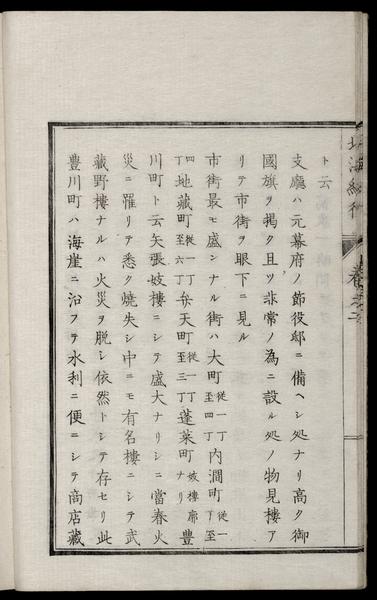 ト云
支廳ハ元幕府ノ節役邸ニ備ヘシ処ナリ高ク御
國旗ヲ掲ク且ツ非常ノ為ニ設ル処ノ物見樓ア
リテ市街ヲ眼下ニ見ル
市街最モ盛ンナル街ハ大町従一丁至四丁内澗町従一丁至
四丁地藏町従一丁至六丁弁天町従一丁至三丁蓬莱町妓樓廓ナリ豊
川町ト云矢張妓樓ニシテ盛大ナリシニ當春火
災ニ罹リテ悉ク焼失シ中ニモ有名樓ニシテ武
藏野樓ナルハ火災ヲ脱シ依然トシテ存セリ此
豊川町ハ海崖ニ沿フテ水利ニ便ニシテ商店藏
巻之二